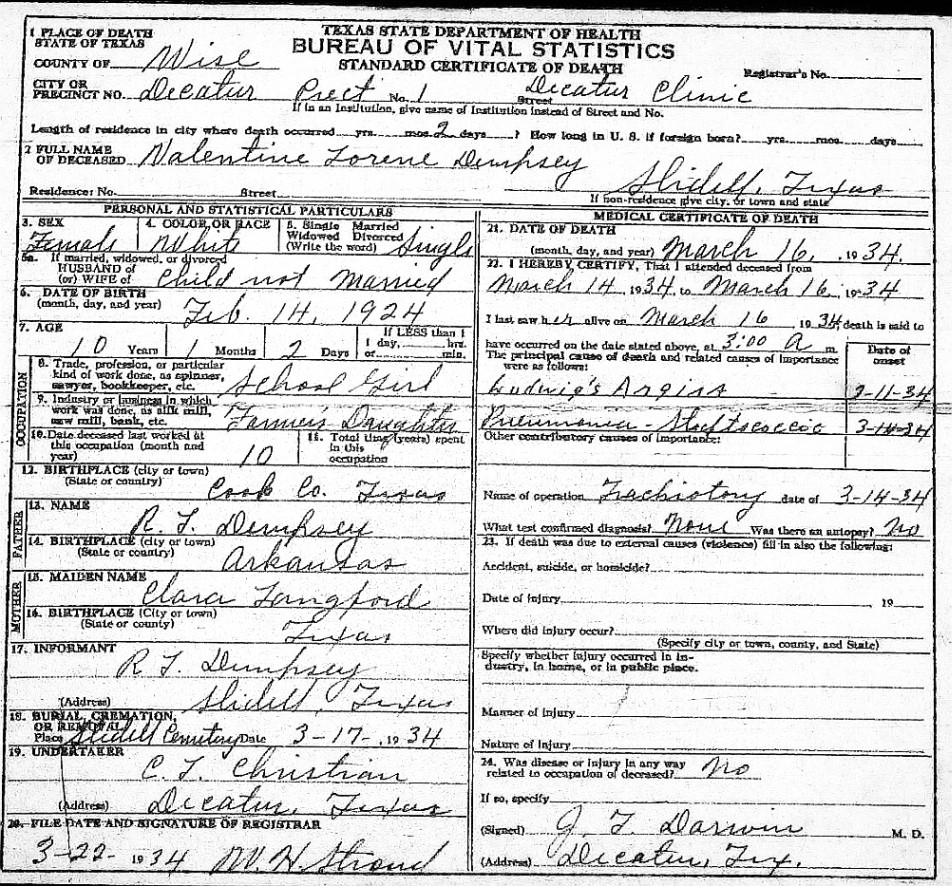 TEXAS STATE DEPARTMENT OF HEALTH
BUREAU OF VITAL STATISTICS
STANDARD CERTIFICATE OF DEATH
1 PLACE OF DEATH
STATE OF TEXAS
COUNTY OF Wise
Registrar's No.
CITY OR
PRECINCT NO. Decatur Prect No. 1 Street Decatur Clinic
If in an Institution, give name of Institution instead of Street and No.
Length of residence in city where death occurred yrs. mos. 2 days ? How long in U. S. if foreign born? yrs. mos. days
2 FULL NAME
OF DECEASED Valentine Lorene Dempsey
Residence: No. Street Slidell, Texas
If non-residence give city, or town and state
PERSONAL AND STATISTICAL PARTICULARS
3. SEX Female
4. COLOR OR RACE White
5. Single Married
Widowed Divorced
(Write the word) Single
5a. If married, widowed, or divorced
HUSBAND of
(or) WIFE of Child not Married
6. DATE OF BIRTH
(month, day, and year) Feb. 14, 1924
7. AGE
10 Years 1 Months 2 Days
If LESS than 1
1 day, hrs.
or min.
OCCUPATION
8. Trade, profession, or particular
kind of work done, as spinner,
sawyer, bookkeeper, etc. School Girl
9. Industry or business in which
work was done, as silk mill,
saw mill, bank, etc. Farmer's Daughter
10. Date deceased last worked at
this occupation (month and
year) 10
11. Total time (years) spent
in this
occupation
12. BIRTHPLACE (city or town)
(State or country) Cook Co. Texas
FATHER
13. NAME R. L. Dempsey
14. BIRTHPLACE (city or town)
(State or country) Arkansas
MOTHER
15. MAIDEN NAME Clara Langford
16. BIRTHPLACE (City or town)
(State or country) Texas
17. INFORMANT R L Dempsey
(Address) Slidell, Texas
18. BURIAL, CREMATION,
OR REMOVAL
Place Slidell Cemetery Date 3-17-, 1934
19. UNDERTAKER C. L. Christian
(Address) Decatur, Texas
20. FILE DATE AND SIGNATURE OF REGISTRAR
3-22- 1934 W. H. Stroud
MEDICAL CERTIFICATE OF DEATH
21. DATE OF DEATH
(month, day, and year) March 16, 1934.
22. I HEREBY CERTIFY, That I attended deceased from
March 14, 1934, to March 16, 1934
I last saw her alive on March 16 1934, death is said to
have occurred on the date stated above, at 3:00 A m.
The principal cause of death and related causes of importance
were as follows:
Date of
onset
Ludwig's Angina 3-11-34
Pneumonia - Streptococcic 3-14-34
Other contributory causes of importance:
Name of operation Trachiotomy date of 3-14-34
What test confirmed diagnosis? None Was there an autopsy? No
23. If death was due to external causes (violence) fill in also the following:
Accident, suicide, or homicide?
Date of injury 19
Where did injury occur?
(Specify city or town, county, and State)
Specify whether injury occurred in in-
dustry, in home, or in public place.
Manner of injury
Nature of injury
24. Was disease or injury in any way
related to occupation of deceased? No
If so, specify
(Signed) J. F. Darwin M. D.
(Address) Decatur, Tex.